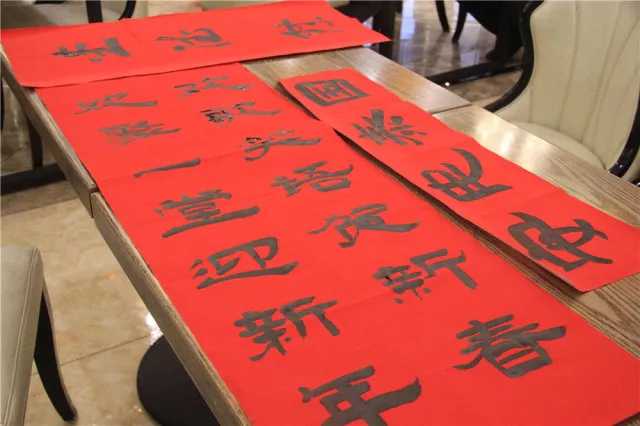 歌笑语贺新春
欢聚一堂迎新年
国泰民安